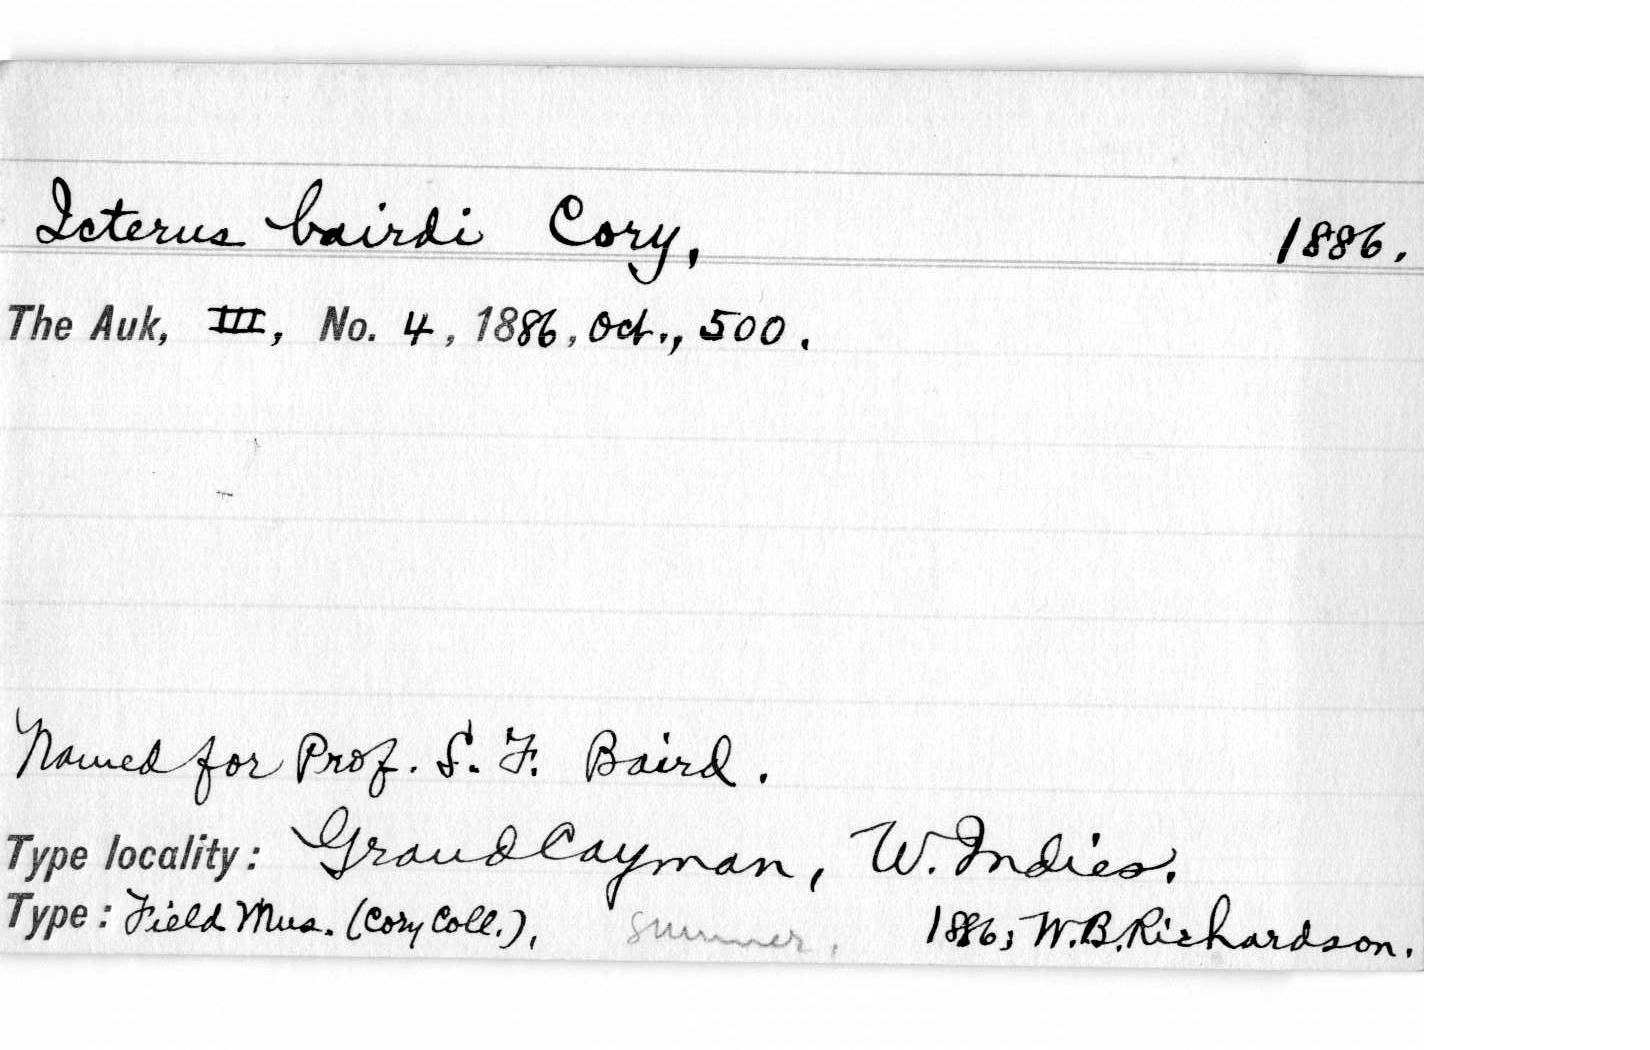 Icterus bairdi Cory, 1886.
The Auk, III, No. 4, 1886, Oct., 500.
Named for Prof. S. F. Baird.
Type locality: Grand Cayman, W. Indies.
Type: Field Mus. (Cory Coll.), summer, 1886; W.B. Richardson.